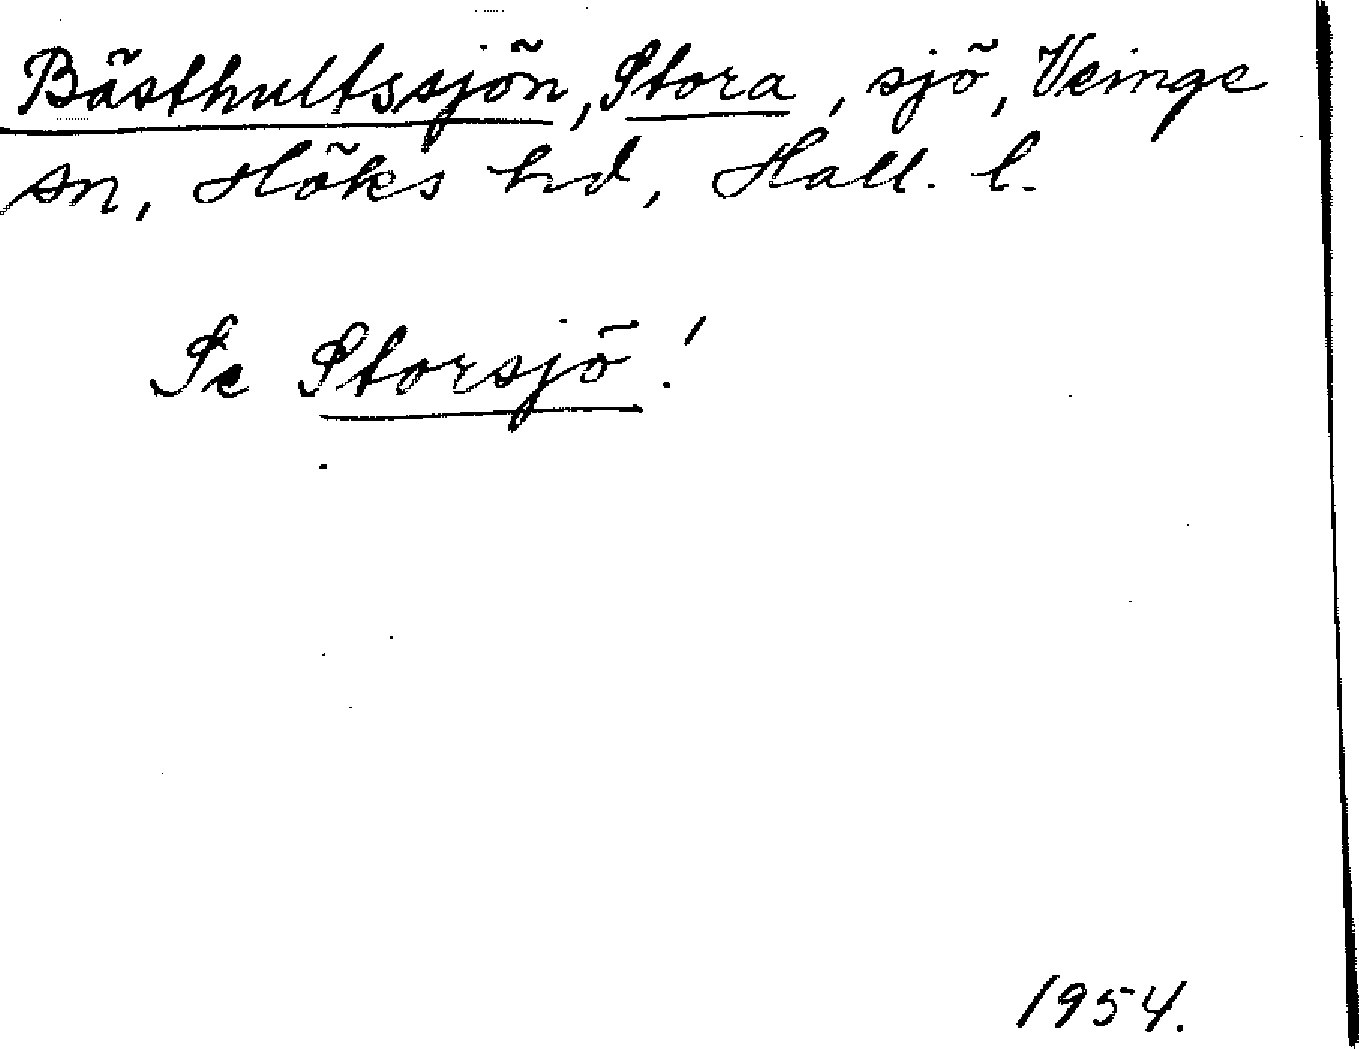 Bästhultssjön, Stora, sjö, Veinge
sn, Höks hd, Hall. l.
Se Storsjö!
1954.